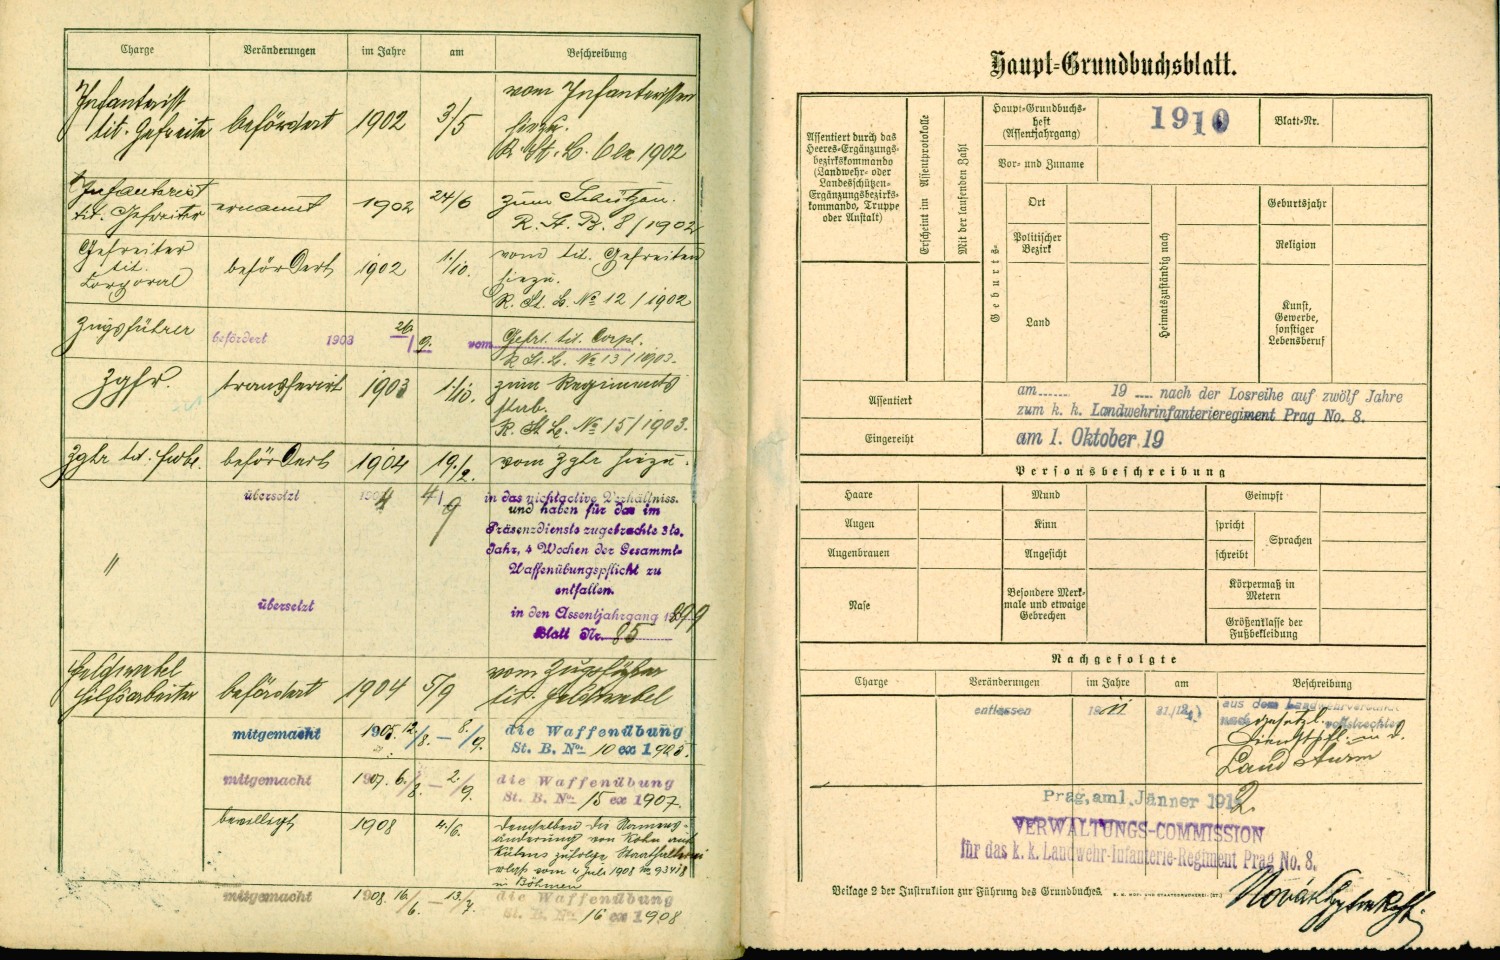 Charge Veränderungen im Jahre am Beschreibung
Infanterist
tit. Gefreite befördert 1902 3/5
vom Infanteristen
hiezu.
1902
Infanterist
tit. Gefreiter ernannt 1902 24/6
zum Schützen.
R. St. B. 8/1902
Gefreiter
tit.
Corporal
befördert 1902 1./10.
vom tit. Gefreiten
hiezu.
R. St. B. No 12/1902
Zugsführer befördert 1903 26/9. vom Gefrt. tit. Corpl.
R. St. B. No 13/1903.
Zgfr. transferirt 1903 1./10.
zum Regiments
stab.
R. St. B. No 15/1903.
Zgfr tit. Fwbl. befördert 1904 19./2. vom Zgfr hiezu.
" übersetzt 1904 4/9 in das nichtactive Verhältniss.
und haben für das im
Präsenzdienste zugebrachte 3te.
Jahr, 4 Wochen der Gesammt-
Waffenübungspflicht zu
entfallen.
übersetzt in den Assentjahrgang 1899
Blatt Nr. 85
Feldwebel
Hilfsarbeiter befördert 1904 5/9
vom Zugsführer
tit. Feldwebel
mitgemacht 1905. 12./8. – 8./9. die Waffenübung
St. B. No 10 ex 1905.
mitgemacht 1907. 6./8. – 2./9. die Waffenübung
St. B. No 15 ex 1907.
bewilligt 1908 4./6.
demselben die Namens-
änderung von Kohn auf
zufolge Statthalterei
vom 4 Juli 1908
in Böhmen
mitgemacht 1908. 16/6. – 13/7. die Waffenübung
St. B. No 16 ex 1908
Haupt-Grundbuchsblatt.
Assentiert durch das
Heeres-Ergänzungs-
bezirkskommando
(Landwehr- oder
Landesschützen-
Ergänzungsbezirks-
kommando, Truppe
oder Anstalt)
Erscheint im Assentprotokolle
Mit der laufenden Zahl
Haupt-Grundbuchs-
heft
(Assentjahrgang)
1910
Blatt-Nr.
Vor- und Zuname
Geburts-
Ort
Politischer
Bezirk
Land
Heimatszuständig nach
Geburtsjahr
Religion
Kunst,
Gewerbe,
sonstiger
Lebensberuf
Assentiert
am...... 19 .... nach der Losreihe auf zwölf Jahre
zum k. k. Landwehrinfanterieregiment Prag No. 8.
Eingereiht am 1. Oktober 19
Personsbeschreibung
Haare Mund Geimpft
Augen Kinn
spricht
schreibt
Sprachen
Augenbrauen Angesicht
Nase
Besondere Merk-
male und etwaige
Gebrechen
Körpermaß in
Metern
Größenklasse der
Fußbekleidung
Nachgefolgte
Charge Veränderungen im Jahre am Beschreibung
entlassen 1911 31./12. aus dem Landwehrverbande
nach gesetzl. vollstreckter
Dienstpfl. in d.
Landsturm
Prag, am 1. Jänner 1912
VERWALTUNGS-COMMISSION
für das k. k. Landwehr-Infanterie-Regiment Prag No. 8.
Beilage 2 der Instruktion zur Führung des Grundbuches. K. K. HOF- UND STAATSDRUCKEREI. (ST.)